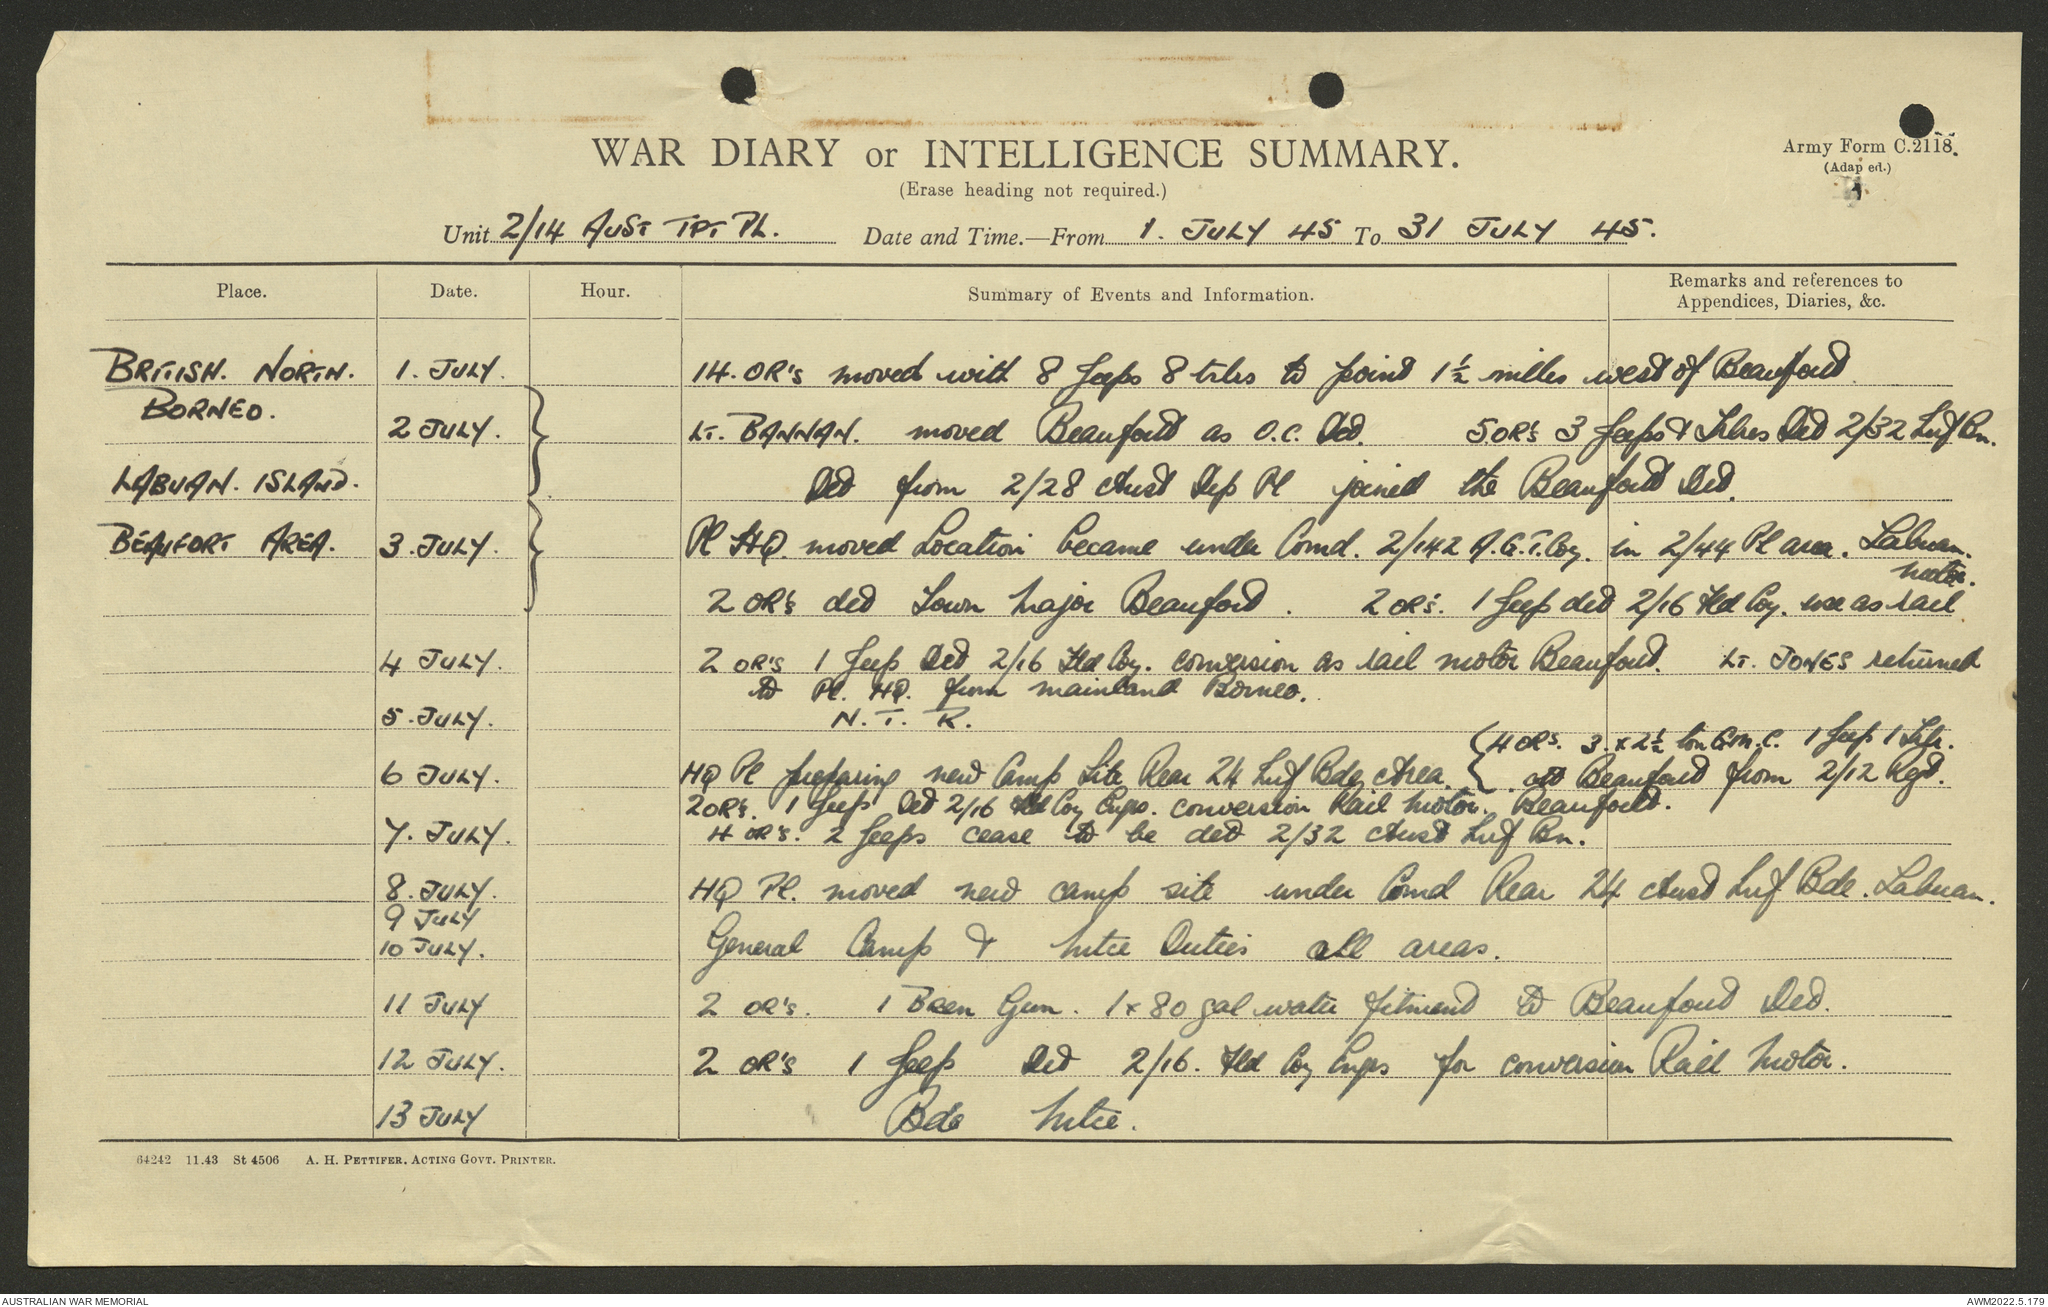 WAR DIARY or INTELLIGENCE SUMMARY.
(Erase heading not required.)
Army Form C.2118.
(Adap ed.)
Unit 2/14 AUST TPT PL. Date and Time.—From 1. JULY 45 To 31 JULY 45.
Place. Date. Hour. Summary of Events and Information. Remarks and references to Appendices, Diaries, &c.
BRITISH. NORTH. 1. JULY. 14. OR's moved with 8 Jeeps 8 trlrs to point 1½ milles west of Beaufort
BORNEO.
2 JULY. LT. BANNAN. moved Beaufort as O.C. Det. 5 OR's 3 Jeeps & Trlrs Det 2/32 Inf Bn.
LABUAN. ISLAND. Det from 2/28 Aust Pl joined the Beaufort Det.
BEAUFORT AREA. 3. JULY. Pl HQ. moved Location became under Comd. 2/142 A.G.T. Coy. in 2/44 Pl area. Labuan.
2 OR's det Town Major Beaufort. 2 OR's. 1 Jeep det 2/16 Fld Coy. use as rail motor.
4 JULY. 2 OR's 1 Jeep Det 2/16 Fld Coy. conversion as rail motor Beaufort. LT. JONES returned
to Pl. HQ. from mainland Borneo.
5. JULY. N. T. R.
{4 ORs. 3. x 2½ ton G.M.C. 1 Jeep 1 Trlr.
6 JULY. HQ Pl preparing new Camp Site Rear 24 Inf Bde Area. { att Beaufort from 2/12 Regt.
2 OR's. 1 Jeep Det 2/16 Fld Coy Engs. conversion Rail Motor. Beaufort.
7. JULY. 4 OR's. 2 Jeeps cease to be det 2/32 Aust Inf Bn.
8. JULY. HQ Pl. moved new camp site under Comd Rear 24 Aust Inf Bde. Labuan.
9 JULY
10 JULY. General Camp & Mtce Duties all areas.
11 JULY 2 OR's. 1 Bren Gun. 1 x 80 gal water fitment to Beaufort Det.
12 JULY. 2 OR's 1 Jeep Det 2/16. Fld Coy Engs for conversion Rail Motor.
13 JULY Bde Mtce.
64242 11.43 St 4506 A. H. PETTIFER, ACTING GOVT. PRINTER.
AUSTRALIAN WAR MEMORIAL AWM2022.5.179